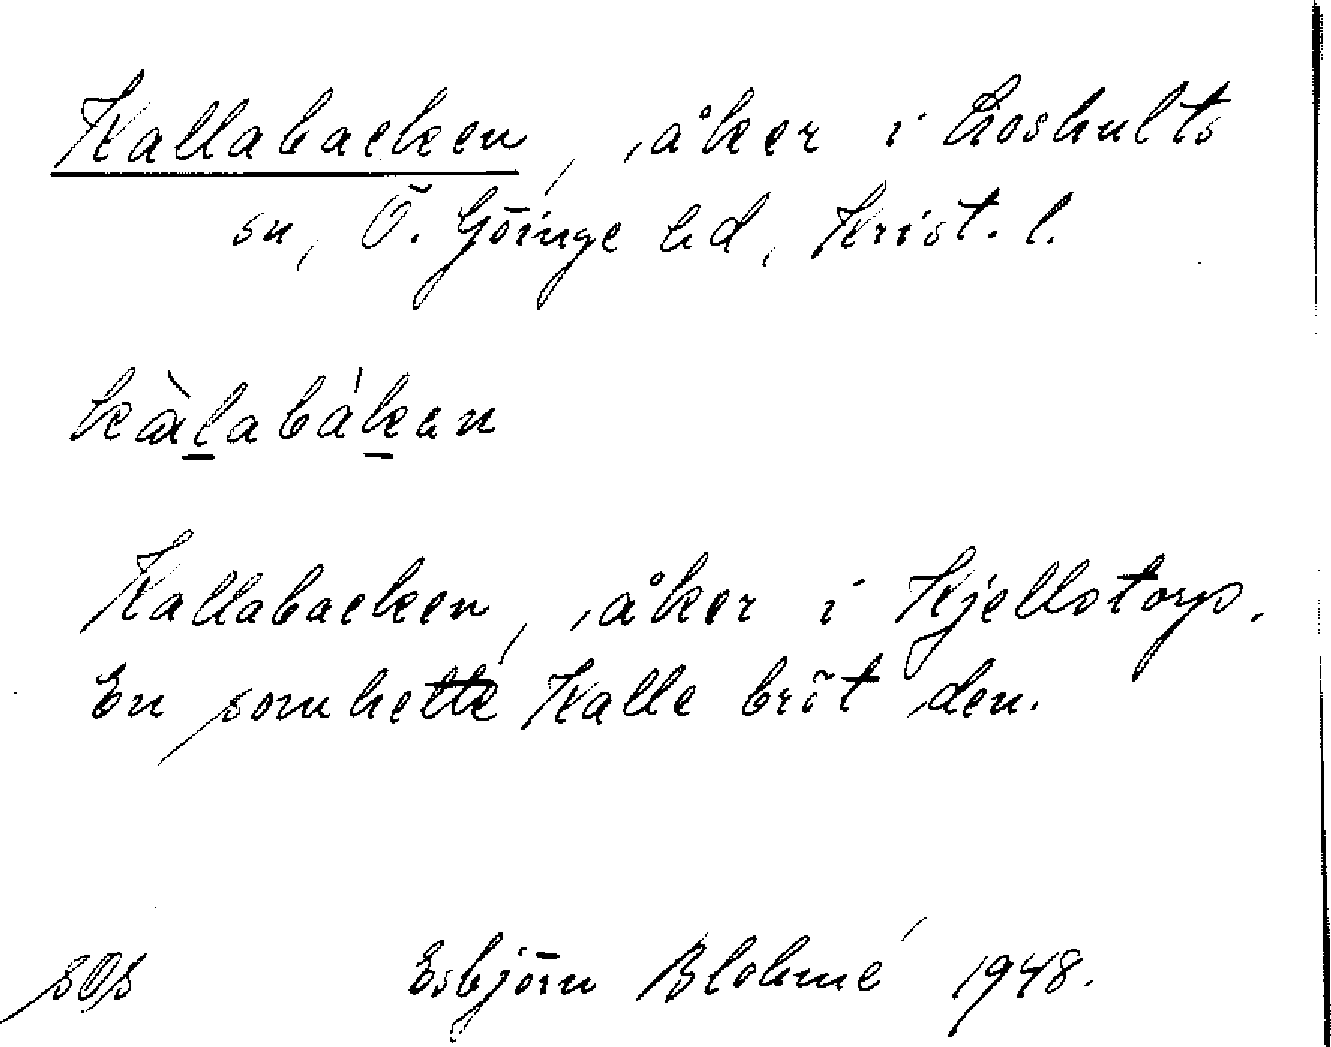 Kallabacken, åker i Loshults
sn, Ö. Göinge hd, Krist. l.
kàlabákan
Kallabacken, åker i Kjellstorp.
En som hette Kalle bröt den.
SOS Esbjörn Blohmé 1948.